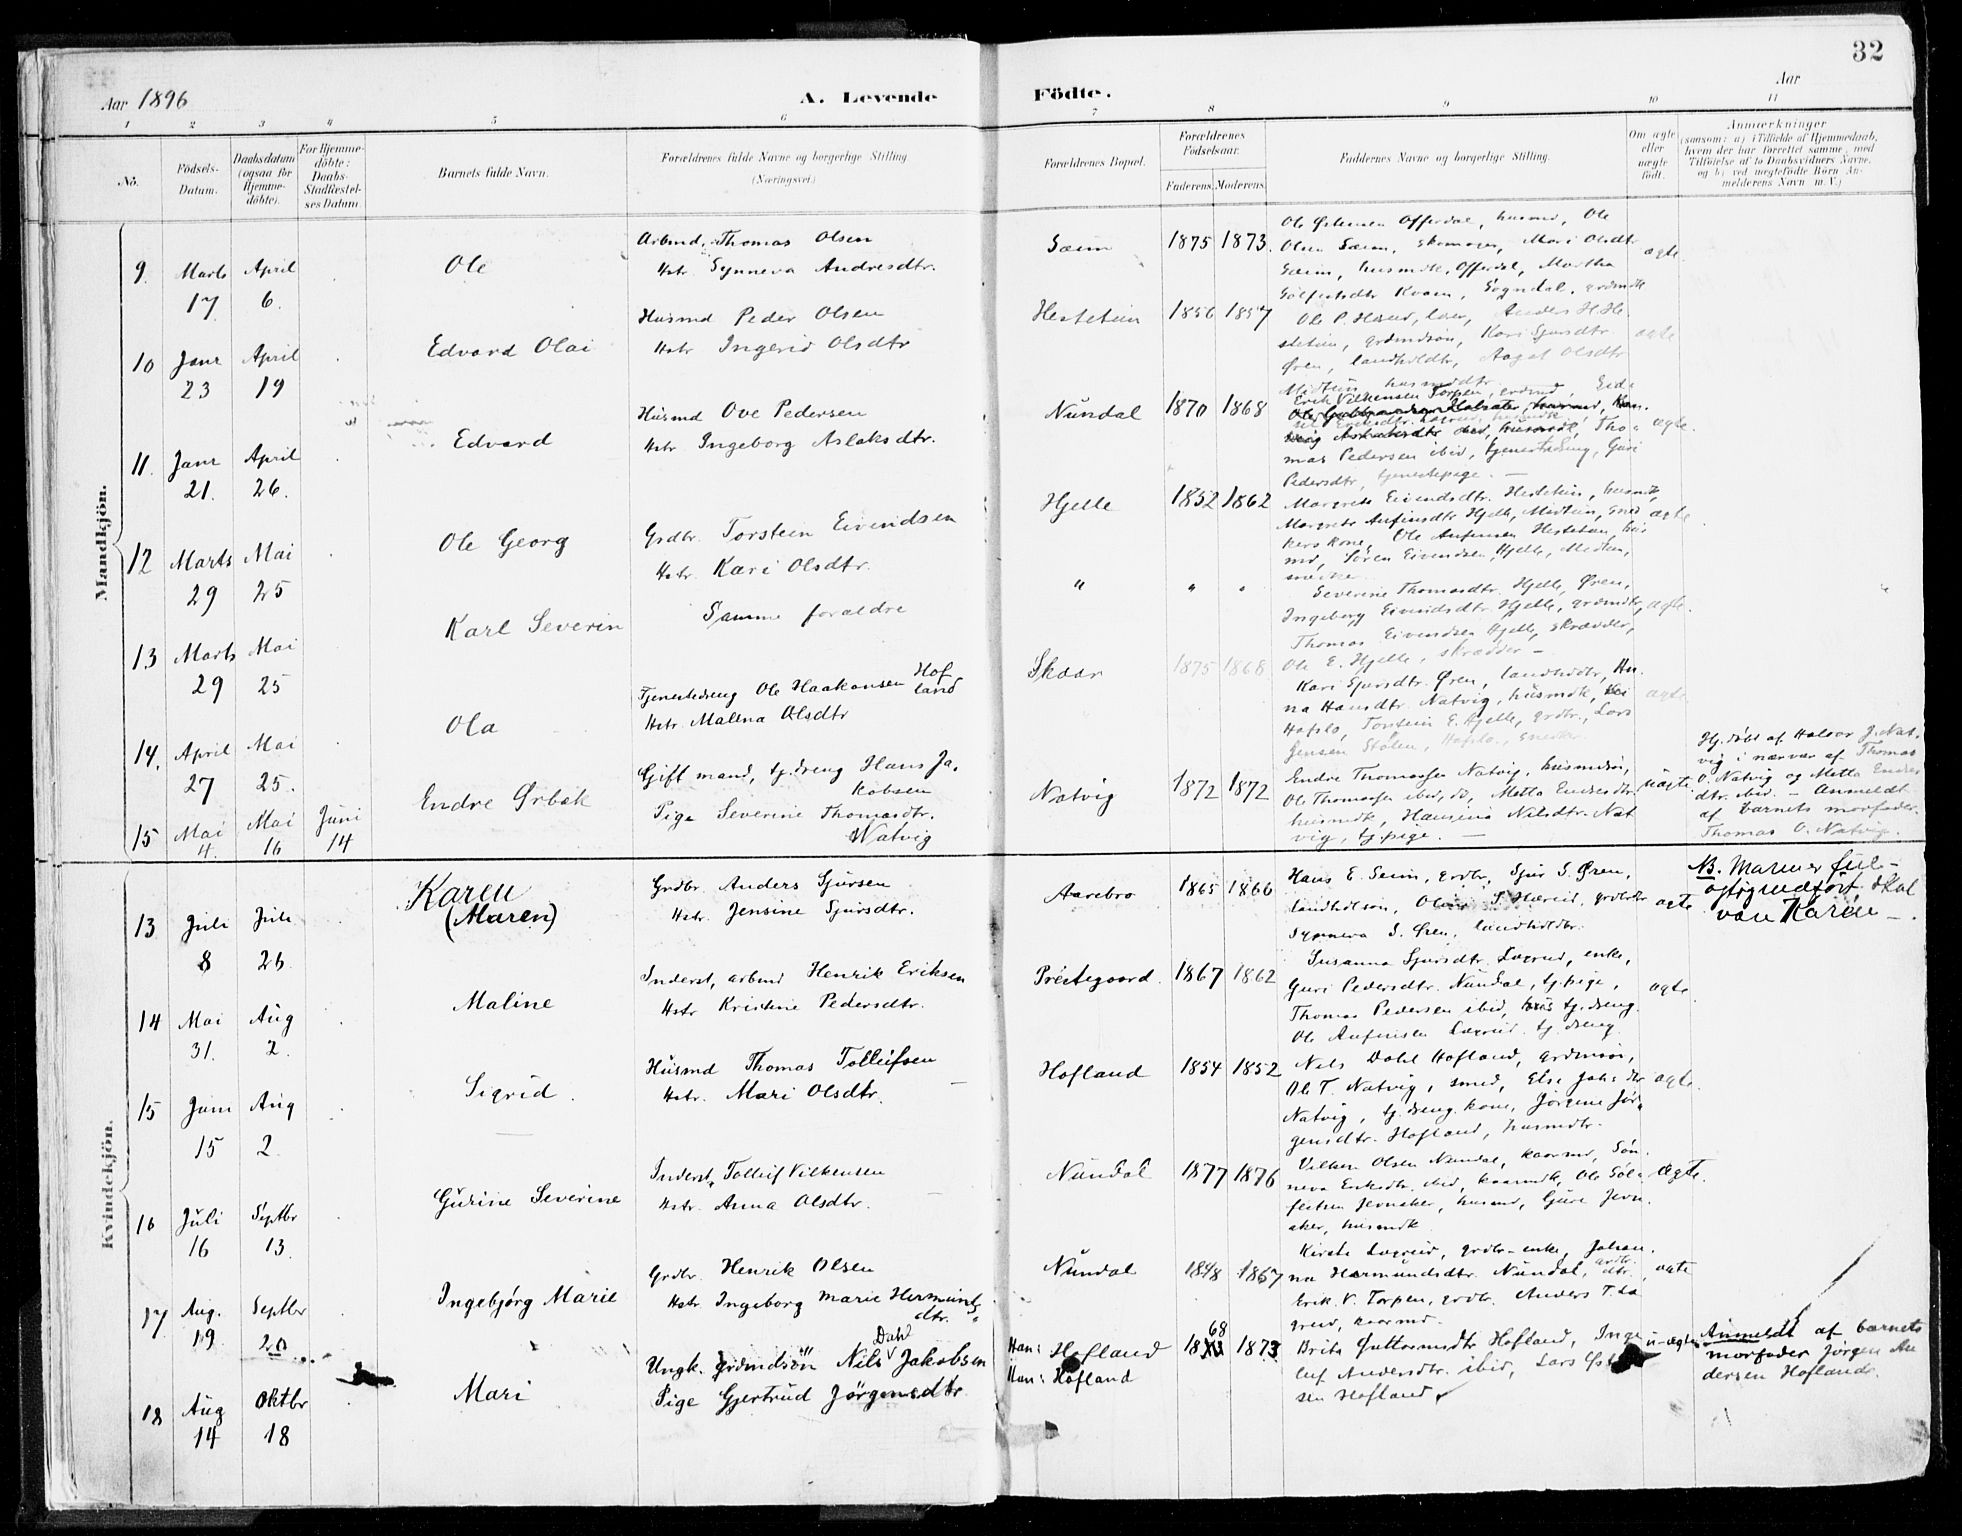 32
Aar 1896
A. Levende Födte.
Aar
1 2 3 4 5 6 7 8 9 10 11
No.
Födsels-
Datum.
Daabsdatum
(ogsaa for
Hjemme-
döbte).
For Hjemme-
döbte:
Daabs-
Stadfæstel-
ses Datum.
Barnets fulde Navn.
Forældrenes fulde Navne og borgerlige Stilling
(Næringsvei.)
Forældrenes Bopæl.
Forældrenes
Födselsaar.
Faderens. Moderens.
Faddernes Navne og borgerlige Stilling.
Om ægte
eller
uægte
födt.
Anmærkninger
(saasom: a) i Tilfælde af Hjemmedaab,
hvem der har forrettet samme, med
Tilföielse af to Daabsvidners Navne,
og b) ved uægtefödte Börn An-
melderens Navn m. V.)
Mandkjön.
9. Marts 17 April 6. Ole
Arbmd. Thomas Olsen
Hstr. Synneva Andresdtr.
Sæim 1875 1873.
Ole Olsen Offerdal, husmd, Ole
Olsen Sæim, skomager, Mari Olsdtr
Sæim, husmdk, Offerdal, Martha
Kvam, Sogndal, grdmdk
ægte
10 Janr 23 April 19 Edvard Olai
Husmd Peder Olsen
Hstr Ingerid Olsdtr
Hestetun 1856 1857
Ole P. Anders H. He-
stetun, grdmdsön, Kari Sjursdtr
Øren, landholdtr, Aagot Olsdtr
Midtun, husmddtr.
ægte
11. Janr 21. April 26. Edvard
Husmd Ove Pedersen
Hstr Ingeborg Aslaksdtr.
Nundal 1870 1868
Erik Vilkensen Torpen, grdmd,
Tho-
mas Pedersen ibid, tjenestedreng, Guri
Pedersdtr, tjenestepige. —
ægte.
12 Marts 29 Mai 25 Ole Georg
Grdbr. Torstein Eivindsen
Hstr. Kari Olsdtr.
Hjelle 1852 1862
Margrete Eivindsdtr. Hestetun, husmdk,
Margrete Anfinsdtr Hjelle, Midtun, sned
kers kone, Ole Anfinsen Hestetun, hus
md, Søren Eivendsen Hjelle, Midtun,
ægte
13 Marts 29 Mai 25 Karl Severin
Samme foraldre
" " "
Severine Thomasdtr. Hjelle, Øren,
Ingeborg Eivindsdtr. Hjelle, grdmdtr,
Thomas Eivendsen Hjelle, skrædder,
Ole E. Hjelle, skrædder —
ægte.
14. April 27 Mai 25. Ola
Tjenestedreng Ole Haakonsen Hof
land
Hstr. Malena Olsdtr
Skaar 1875 1868
Kari Sjursdtr. Øren, landholdtr, Han.
na Hansdtr. Natvig, husmdk,
Hafslo, Torstein E. Hjelle, grdbr, Lars
Jensen Stölen, Hafslo, snedker
ægte
15 Mai 4. Mai 16 Juni 14 Endre Ørbæk
Gift mand, tj.dreng Hans Ja-
kobsen
Pige Severine Thomasdtr.
Natvig
Natvig 1872 1872
Endre Thomassen Natvig, husmdsön,
Ole Thomassen ibid, do, Metta Endresdtr
husmdk, Hansena Nilsdtr. Nat
vig, tj.pige. —
uægte
Hj. døbt af Halvor J. Nat-
vig i nærvær af Thomas
O. Natvig og Metta Endres
dtr. ibid. — Anmeldt
af barnets morfader
Thomas O. Natvig.
Kvindekjön.
13 Juli 8 Juli 26 Karen
(Maren)
Grdbr. Anders Sjursen
Hstr. Jensine Sjursdtr.
Aarebro 1865 1866
Hans E. Seim, grdbr, Sjur S. Øren,
landholsön, grdbrdtr
Synneva S. Øren, landholdtr.
ægte
NB. Maren er feil-
agtig indført. Skal
være Karen —.
14 Mai 31. Aug 2. Maline
Inderst, arbmd Henrik Eriksen
Hstr Kristine Pedersdtr.
Prestegaard. 1867 1862
Susanna Sjursdtr. Lægreid, enke,
Guri Pedersdtr. Nundal, tj.pige,
Thomas Pedersen ibid, tj.dreng
Ole Anfinsen Lægreid. tj.dreng
ægte
15 Juni 15 Aug 2. Sigrid.
Husmd Thomas Tolleifsen
Hstr. Mari Olsdtr.
Hofland 1854 1852
Nils Dahl Hofland, grdmsön,
Ole T. Natvig, smed, Else Jahs dtr
Natvig, tj.dreng kone, Jörgine Jör-
gensdtr. Hofland, husmdtr.
ægte.
16 Juli 16 Septbr 13. Gurine Severine
Inderst, Tolleif Vilkensen
Hstr. Anna Olsdtr.
Nundal 1877 1876
Vilken Olsen Nundal, kaarmd, Sön.
neva Eriksdtr. ibid, kaarmdk, Ole Göl-
feitsen Jevnaker, husmd, Guri Jevn.
aker, husmdk
ægte.
17 Aug. 19 Septbr 20 Ingebjørg Marie
Grdbr. Henrik Olsen
Hstr. Ingeborg Marie Hermunds
dtr.
Nundal 1848 1867
Kirsti Lægreid, grdbr-enke, Johan.
na Hermundsdtr. Nundal, grdbr.
dtr,
Erik. V. Torpen, grdbr. Anders T. Læ
greid, kaarmd.
ægte
18 Aug 14 Oktbr 18 Mari
Ungk. grdmdsön Nils Dahl Jakobsen
Pige Gjertrud Jörgensdtr
Han: Hofland
Hun: Hofland
1868 1873
Brita Guttormsdtr Hofland, Inge
leif Andersdtr. ibid, Lars
sen Hofland
u-ægte
Anmeldt af barnets
morfader Jörgen An
dersen Hofland.